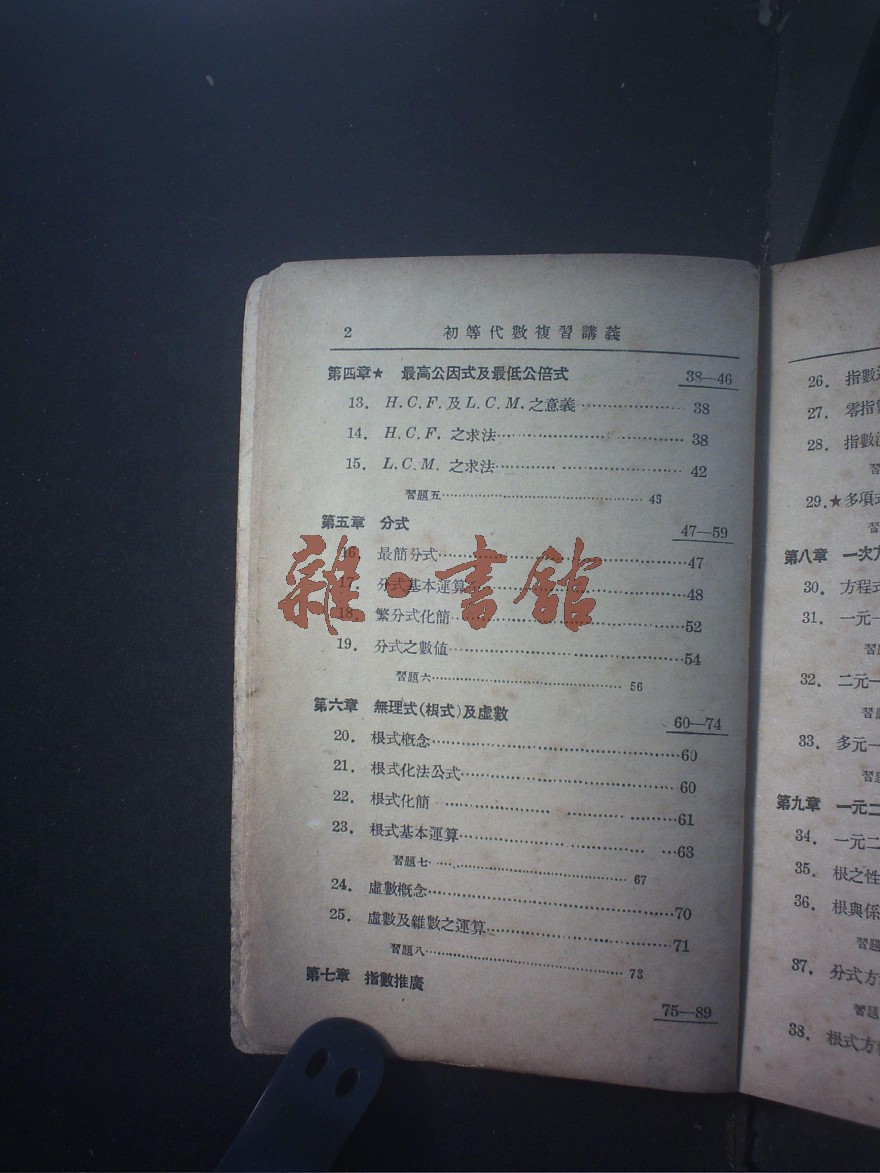 2 初等代數複習講義
第四章★ 最高公因式及最低公倍式 38—46
13. H.C.F.及L.C.M.之意義 38
14. H.C.F.之求法 38
15. L.C.M.之求法 42
習題五 45
第五章 分式 47—59
16. 最簡分式 47
17. 分式基本運算 48
18. 繁分式化簡 52
19. 分式之數值 54
習題六 56
第六章 無理式(根式)及虛數 60—74
20. 根式概念 60
21. 根式化法公式 60
22. 根式化簡 61
23. 根式基本運算 63
習題七 67
24. 虛數概念 70
25. 虛數及雜數之運算 71
習題八 73
第七章 指數推廣 75—89
雜·書館
26. 指數
27. 零指
28. 指數
習
29.★多項
習
第八章 一次
30. 方程式
31. 一元一
習題
32. 二元一
習題
33. 多元一
習題
第九章 一元二
34. 一元二
35. 根之性
36. 根與係
習題
37. 分式方
習題
38. 根式方